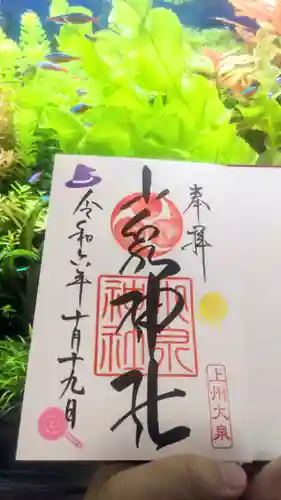 奉拝
小泉神社
小泉
神社
令和六年十月十九日
上州大泉